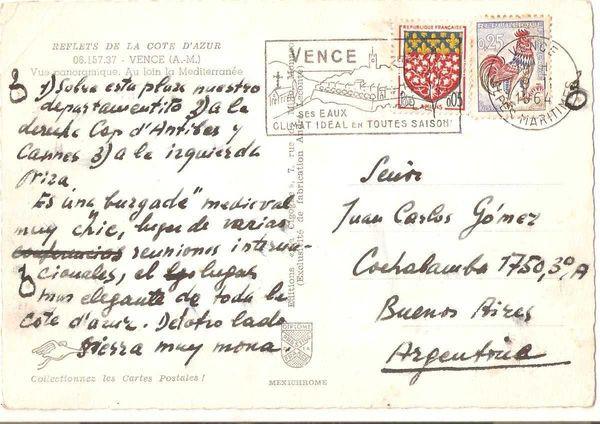 REFLETS DE LA COTE D'AZUR
06.157.37 - VENCE (A.-M.)
Vue panoramique. Au loin la Mediterranée
1) Sobre esta plaza nuestro
departamentito 2) a la
derecha Cap d'Antibes y
Cannes 3) a la izquierda
Niza.
Es una burgade medieval
muy "chic, lugar de varias
conferencias reuniones interna-
cionales, el lugar
mas elegante de toda la
cote d'azur. Del otro lado
sierra muy mona.
Collectionnez les Cartes Postales !
Editions "Les Cigognes", 7, rue
(Exclusivité de fabrication André Leconte)
DIPLOME
MEXICHROME
VENCE
SES EAUX
CLIMAT IDEAL EN TOUTES SAISONS
REPUBLIQUE FRANÇAISE
POSTES
0,05
AMIENS
0,25
VENCE
ALPES MARITIMES
Señor
Juan Carlos Gómez
Cochabamba 1750, 3º, A
Buenos Aires
Argentina